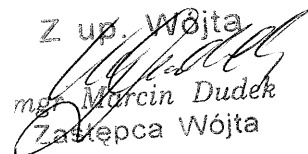 Z up. Wójta
mgr Marcin Dudek
Zastępca Wójta